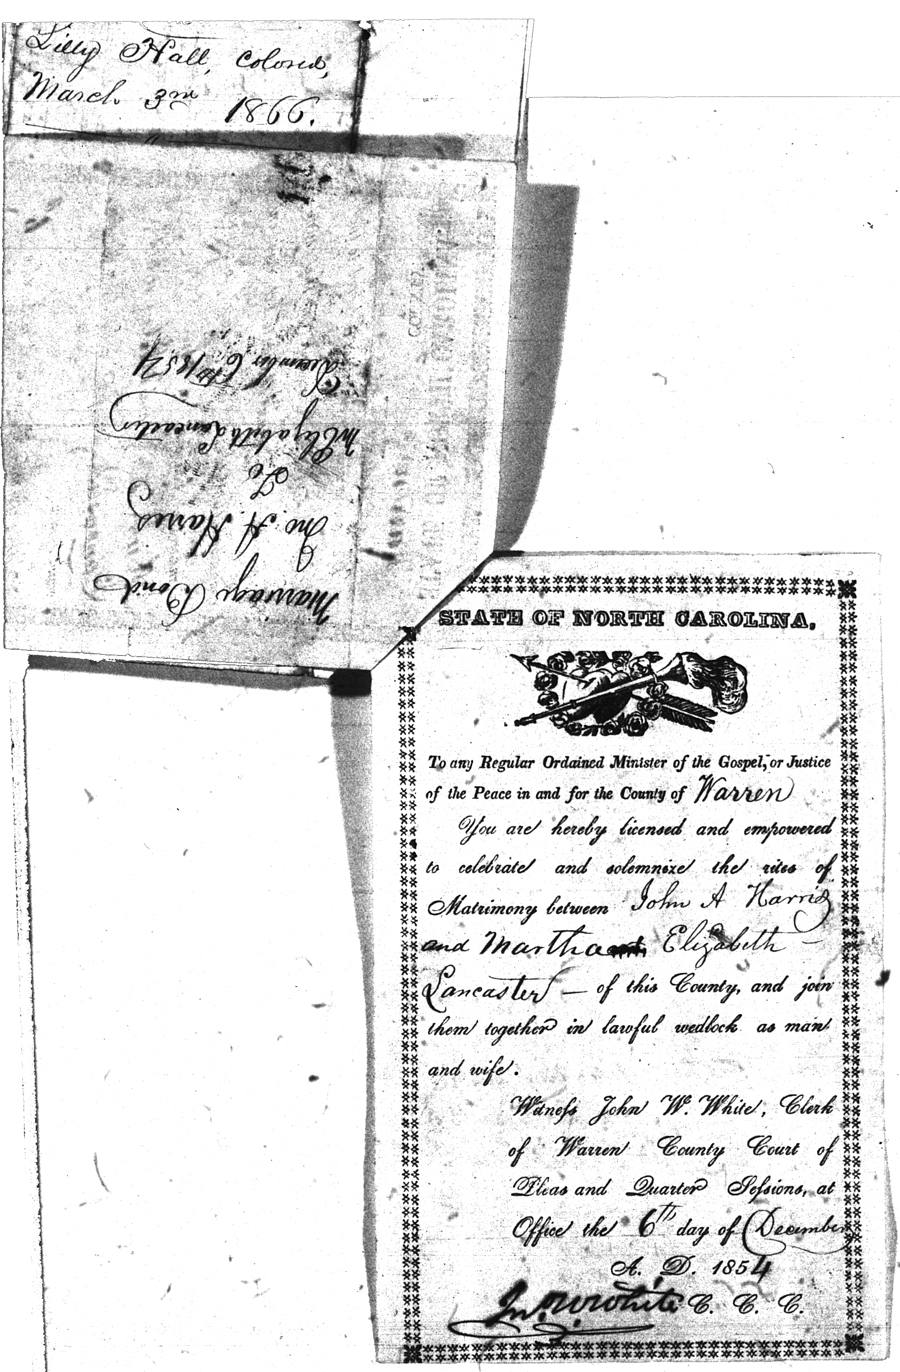 Lilly Hall, colored,
March 3rd 1866.
Marriage Bond
Jno. A. Harris
To
M Elizabeth Lancaster
December 6th 1854
STATE OF NORTH CAROLINA.
To any Regular Ordained Minister of the Gospel, or Justice
of the Peace in and for the County of Warren
You are hereby licensed and empowered
to celebrate and solemnize the rites of
Matrimony between John A Harris
and Martha Elizabeth —
Lancaster — of this County, and join
them together in lawful wedlock as man
and wife.
Witness John W. White, Clerk
of Warren County Court of
Pleas and Quarter Sessions, at
Office the 6th day of December
A. D. 1854
Jno. W. White C. C. C.